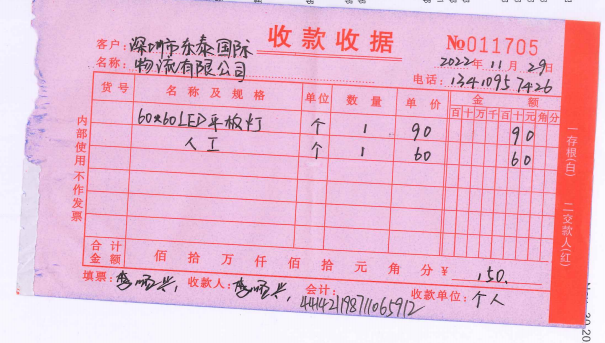 收款收据
No011705
客户：深圳市东泰国际
名称：物流有限公司
2022年11月29日
电话：13410957426
货号 名称及规格 单位 数量 单价 金额
百十万千百十元角分
60x60LED平板灯 个 1 90 90
人工 个 1 60 60
合计金额 佰拾万仟佰拾元角分¥ 150.
填票： 收款人： 会计： 收款单位：个人
内部使用 不作发票
一存根(白) 二交款人(红)